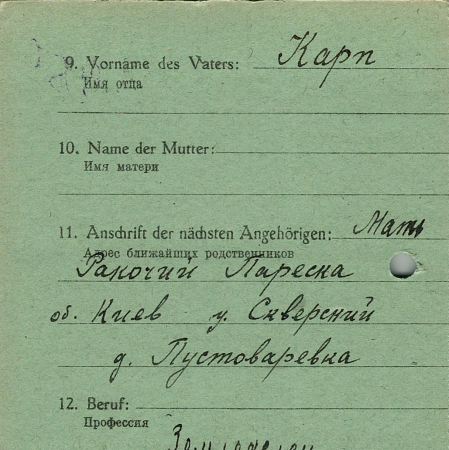 9. Vorname des Vaters: Карп
Имя отца
10. Name der Mutter:
Имя матери
11. Anschrift der nächsten Angehörigen: Мать
Адрес ближайших родственников
Ракочий Пареска
об. Киев у. Скверский
д. Пустоваревка
12. Beruf:
Профессия